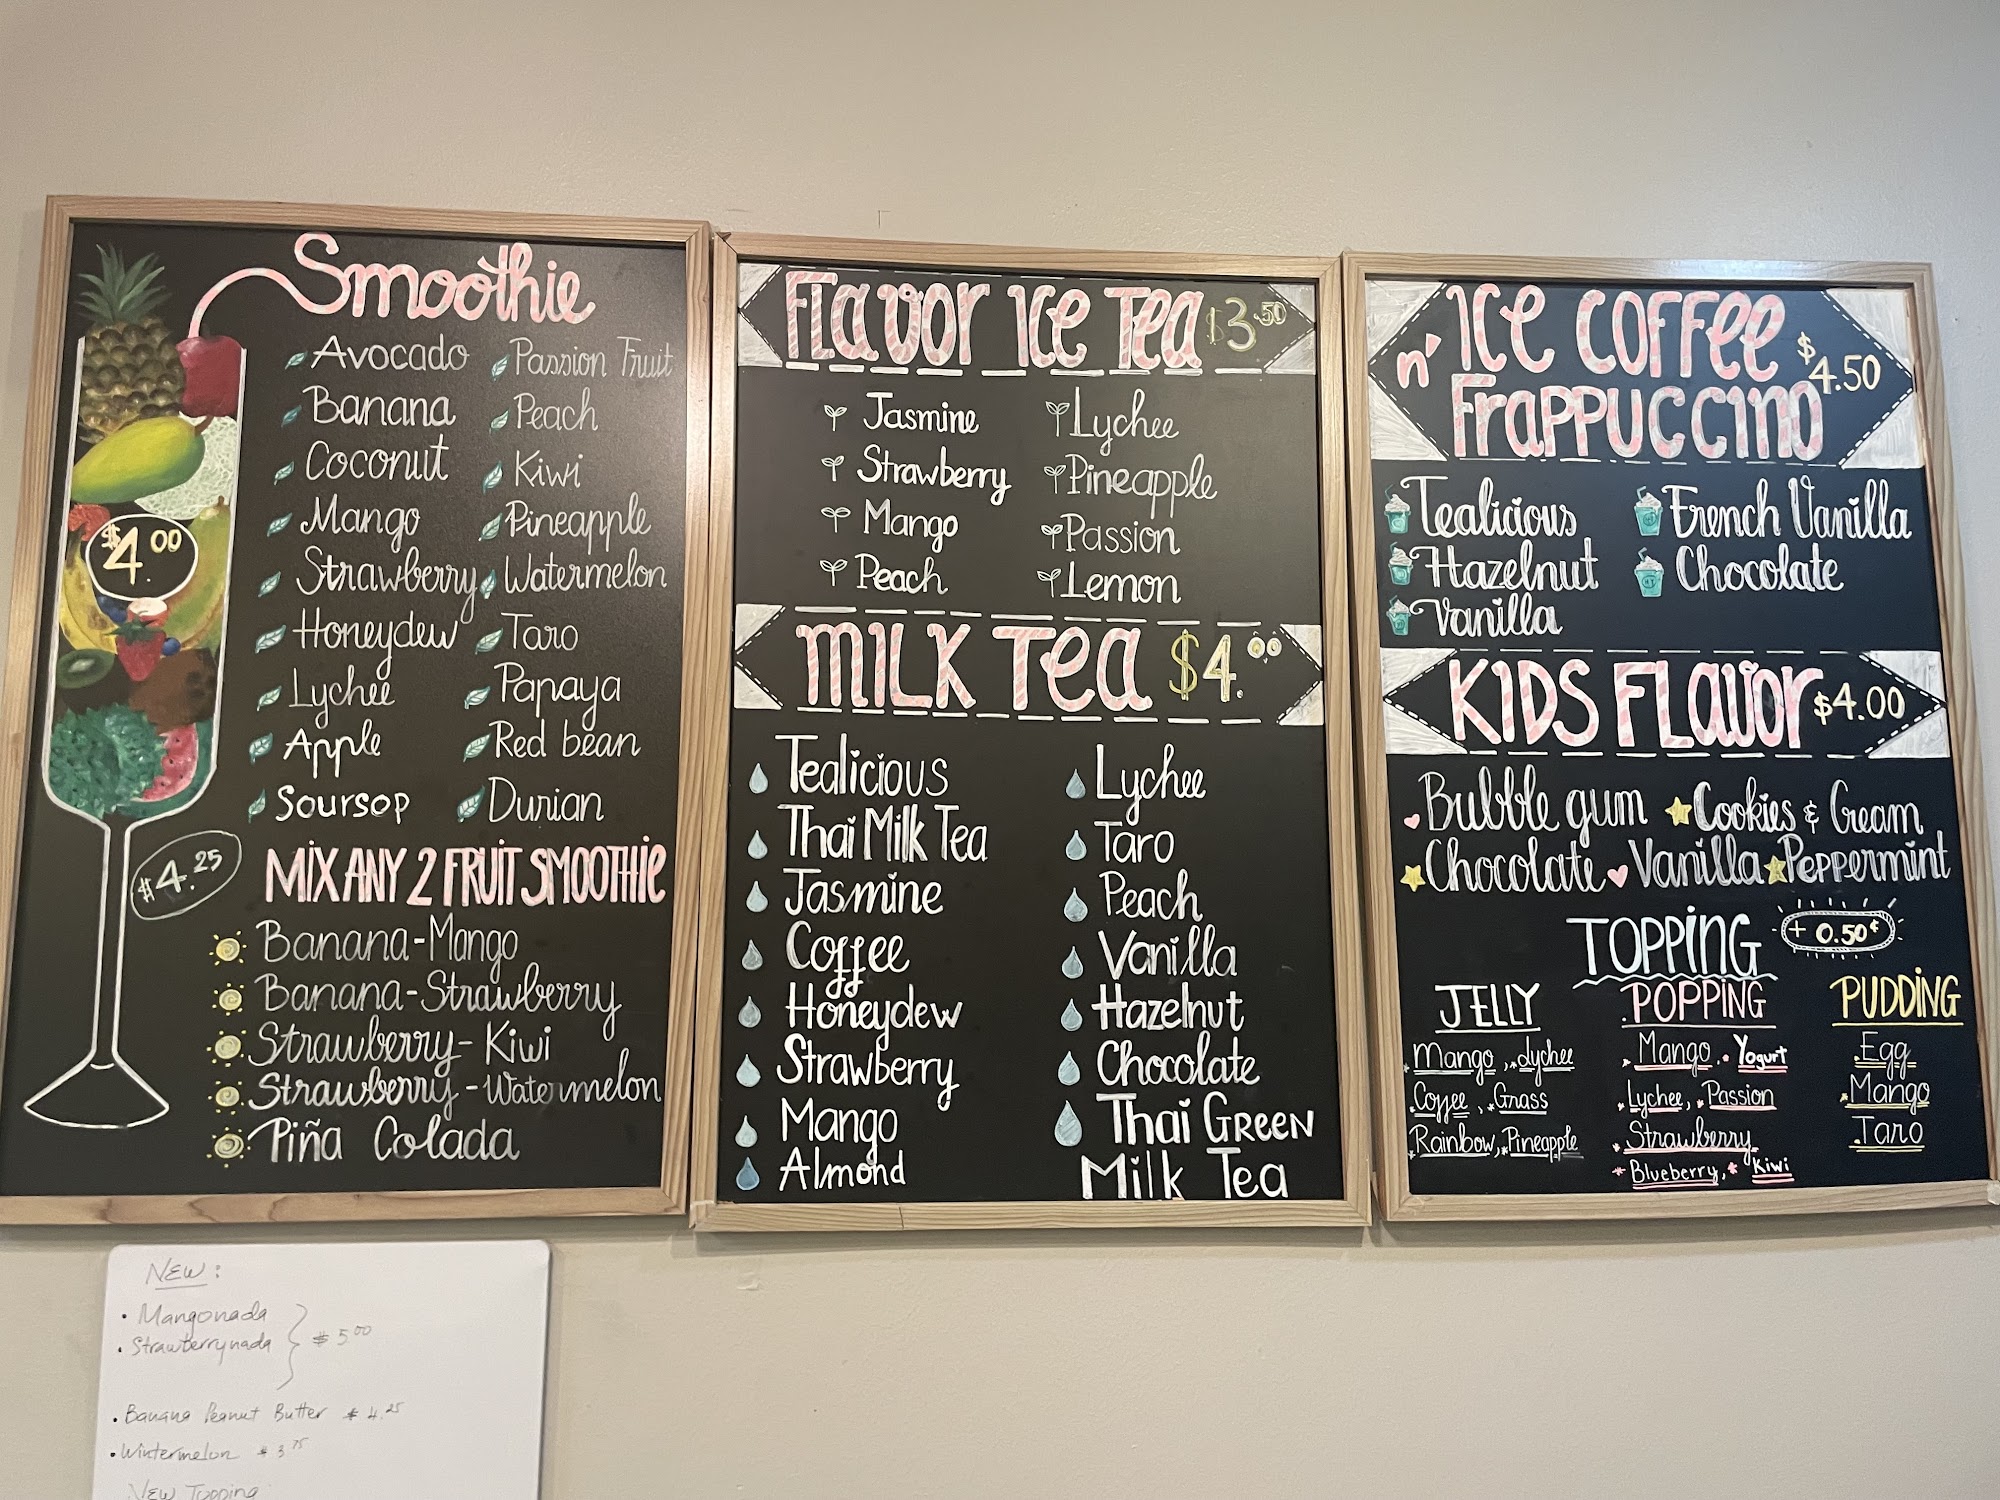 Smoothie
$4.00
Avocado
Banana
Coconut
Mango
Strawberry
Honeydew
Lychee
Apple
Soursop
Passion Fruit
Peach
Kiwi
Pineapple
Watermelon
Taro
Papaya
Red bean
Durian
$4.25
MIX ANY 2 FRUIT SMOOTHIE
Banana-Mango
Banana-Strawberry
Strawberry-Kiwi
Strawberry-Watermelon
Piña Colada
FLavor ice Tea $3.50
Jasmine
Strawberry
Mango
Peach
Lychee
Pineapple
Passion
Lemon
MiLK Tea $4.00
Tealicious
Thai Milk Tea
Jasmine
Coffee
Honeydew
Strawberry
Mango
Almond
Lychee
Taro
Peach
Vanilla
Hazelnut
Chocolate
Thai GREEN
Milk Tea
ICe COFFee
n' FrAPPUCCino
$4.50
Tealicious
Hazelnut
Vanilla
French Vanilla
Chocolate
KIDS FLavor $4.00
Bubble gum Cookies & Cream
Chocolate Vanilla Peppermint
TOPPiNG + 0.50¢
JELLY
Mango, Lychee
Coffee, Grass
Rainbow, Pineapple
POPPiNG
Mango, Yogurt
Lychee, Passion
Strawberry
Blueberry, Kiwi
PUDDiNG
Egg
Mango
Taro
NEW:
• Mangonada
• Strawberrynada
$ 5.00
• Banana Peanut Butter $ 4.25
• Wintermelon $ 3.75
NEW Topping: